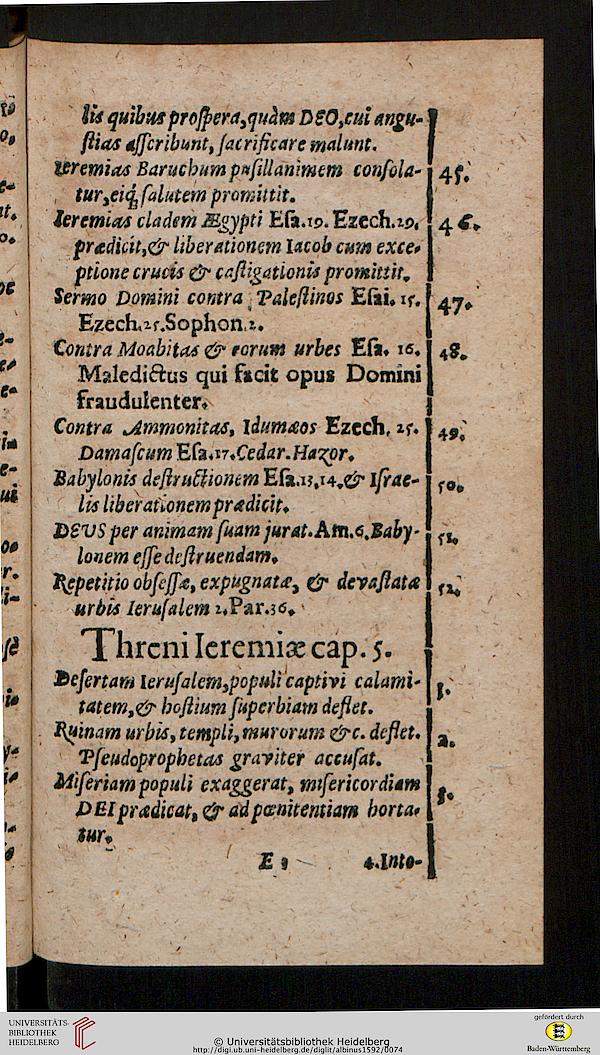 lis quibus prospera, quàm DEO, cui angu-
stias asscribunt, sacrificare malunt.
Ieremias Baruchum pusillanimem consola- 45.
tur, eiq; salutem promittit.
Ieremias cladem Ægypti Esa.19. Ezech.29. 46.
prædicit, & liberationem Iacob cum exce-
ptione crucis & castigationis promittit.
Sermo Domini contra Palestinos Esai. 15. 47.
Ezech.25. Sophon.2.
Contra Moabitas & eorum urbes Esa. 16. 48.
Maledictus qui facit opus Domini
fraudulenter.
Contra Ammonitas, Idumæos Ezech. 25. 49.
Damascum Esa.17. Cedar. Hazor.
Babylonis destructionem Esa.13.14. & Israe- 50.
lis liberationem prædicit.
DEUS per animam suam jurat. Am.6. Baby- 51.
lonem esse destruendam.
Repetitio obsessæ, expugnatæ, & devastatæ 52.
urbis Ierusalem 2. Par.36.
Threni Ieremiæ cap. 5.
Desertam Ierusalem, populi captivi calami- 1.
tatem, & hostium superbiam deflet.
Ruinam urbis, templi, murorum &c. deflet. 2.
Pseudoprophetas graviter accusat.
Miseriam populi exaggerat, misericordiam 3.
DEI prædicat, & ad pœnitentiam horta-
tur.
E 3 4. Into-
UNIVERSITÄTS-
BIBLIOTHEK
HEIDELBERG
© Universitätsbibliothek Heidelberg
http://digi.ub.uni-heidelberg.de/diglit/albinus1592/0074
gefördert durch
Baden-Württemberg